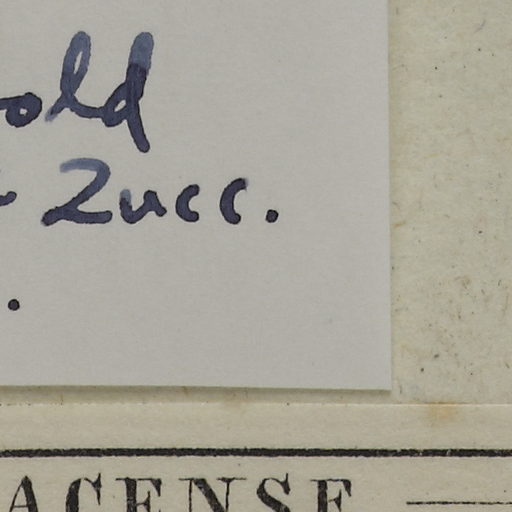 old
Zucc.
.
ACENSE